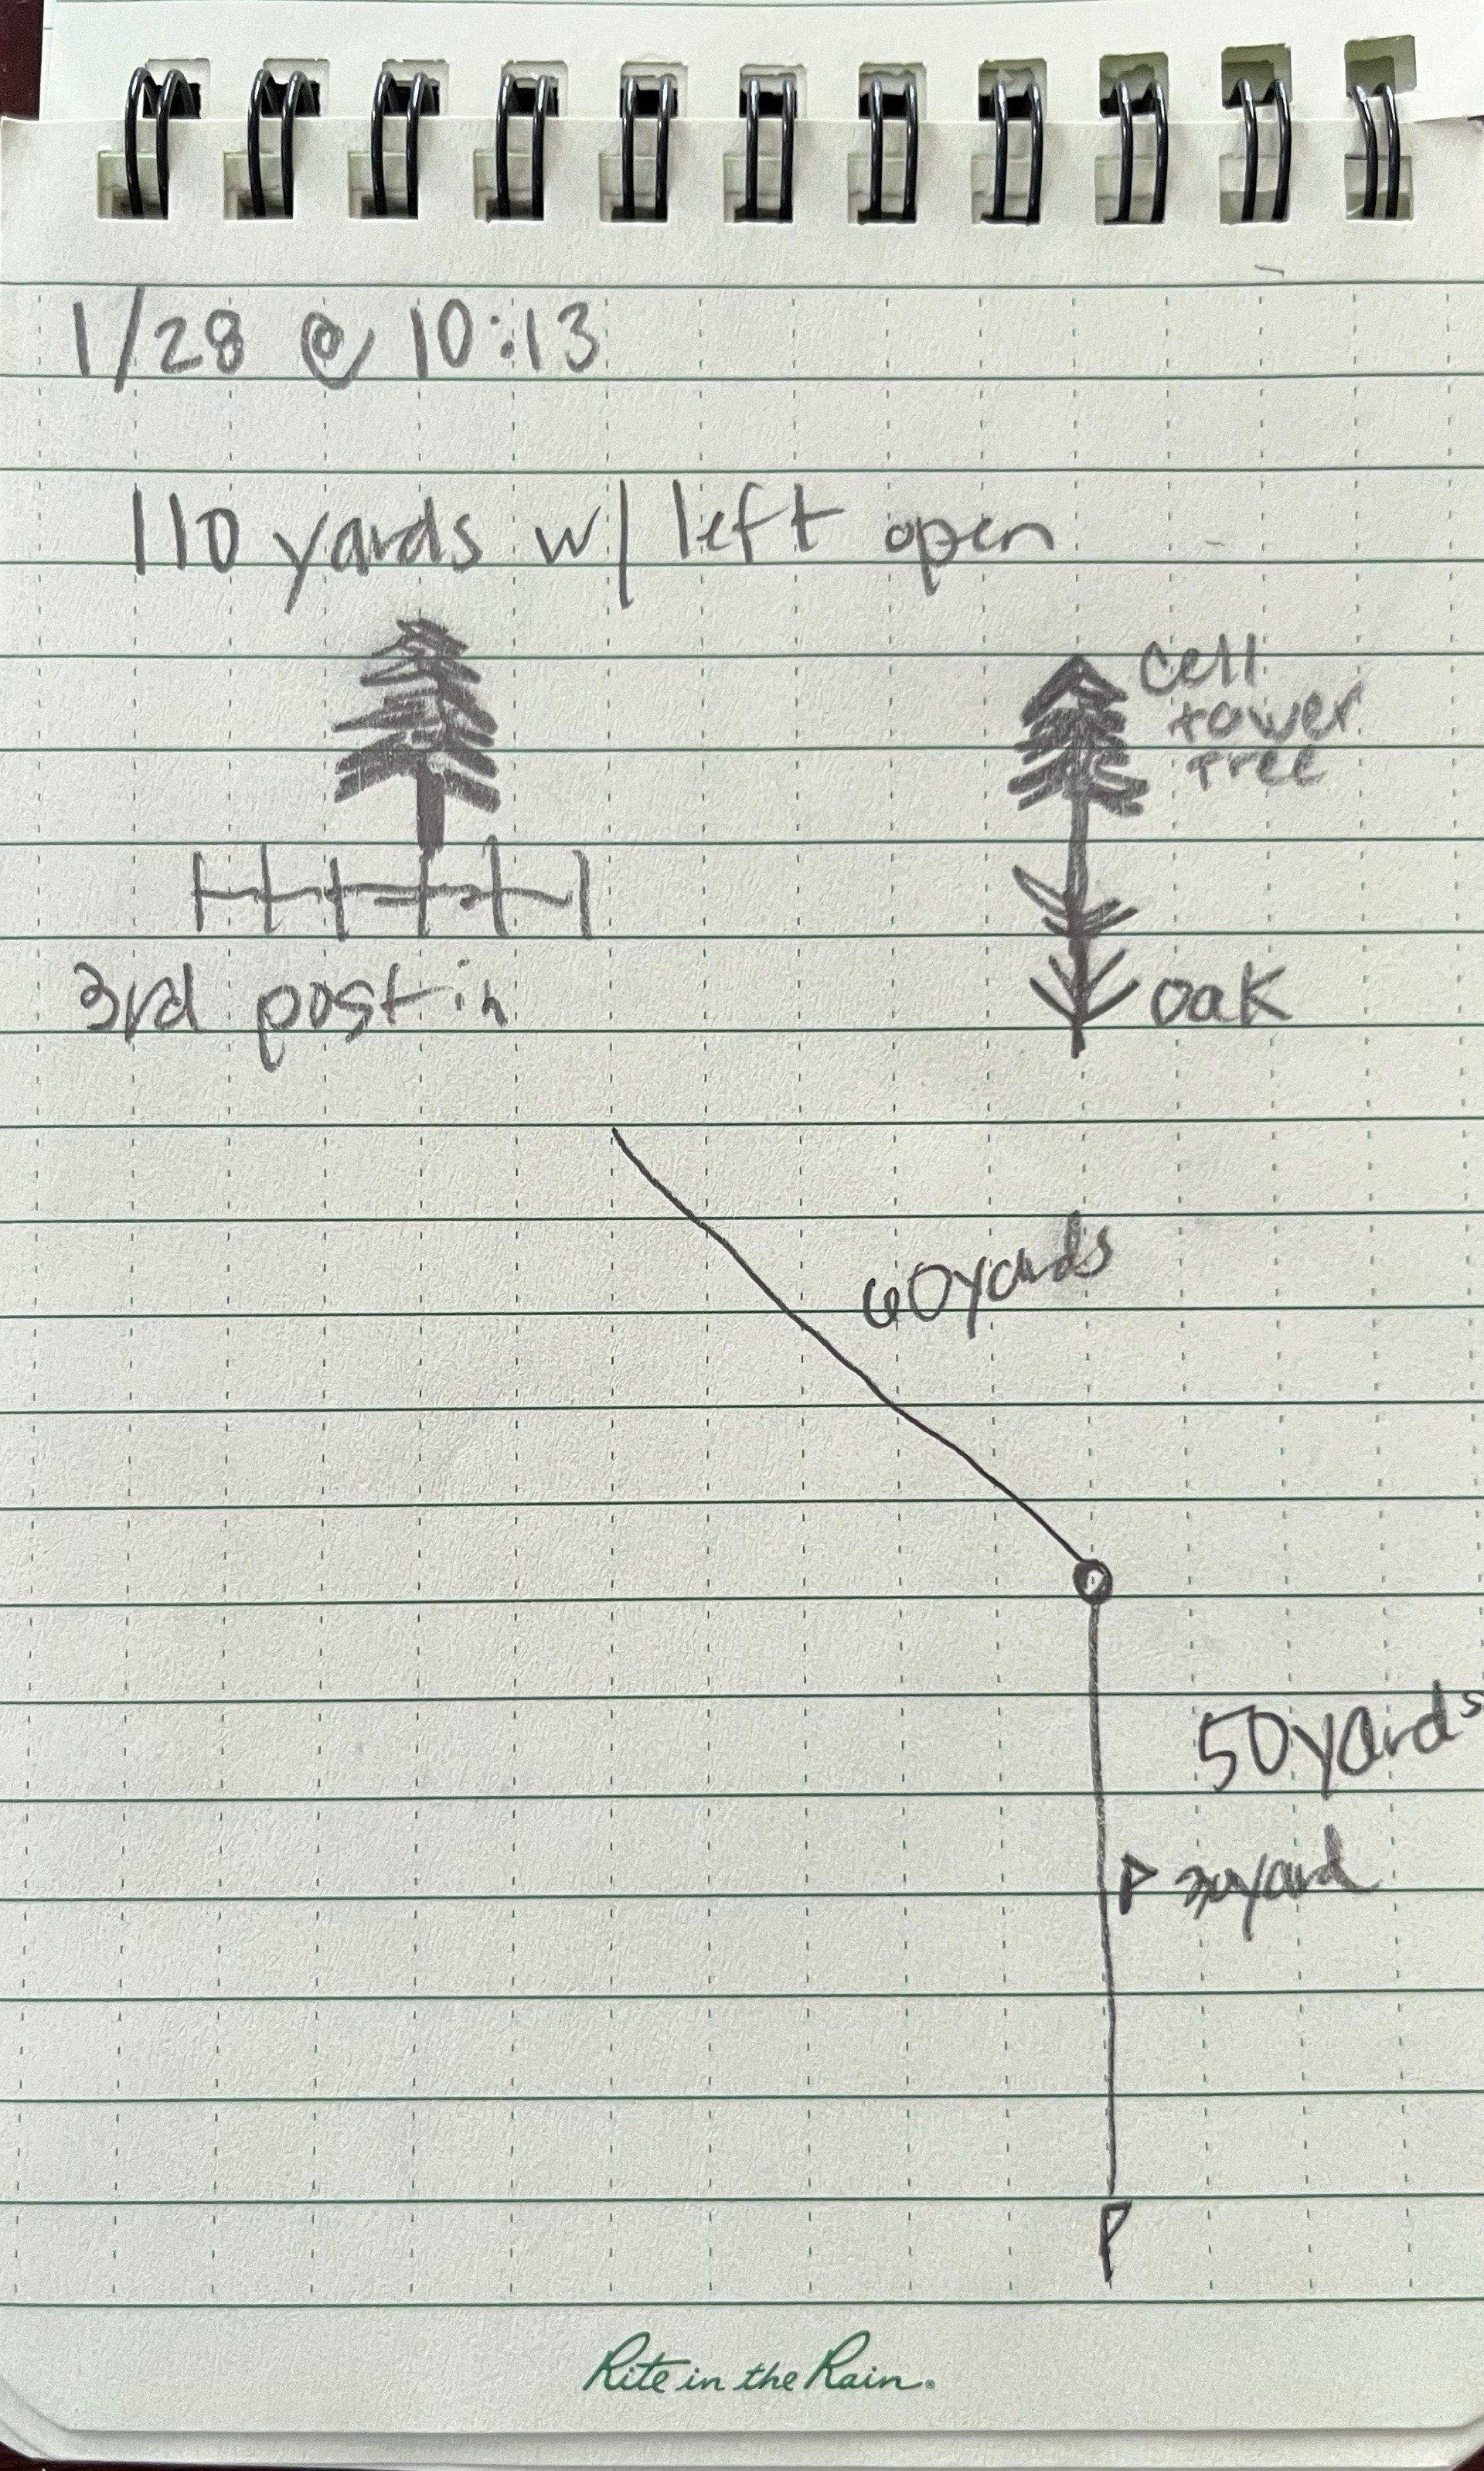 1/28 @ 10:13
110 yards w/ left open
cell
tower
tree
3rd post in
oak
60 yards
50 yards
yard
P
Rite in the Rain.